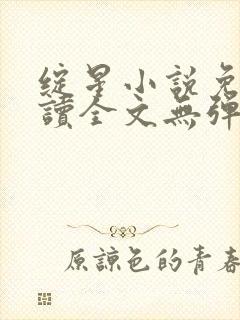 綻星小說免
讀全文無彈
原諒色的青春